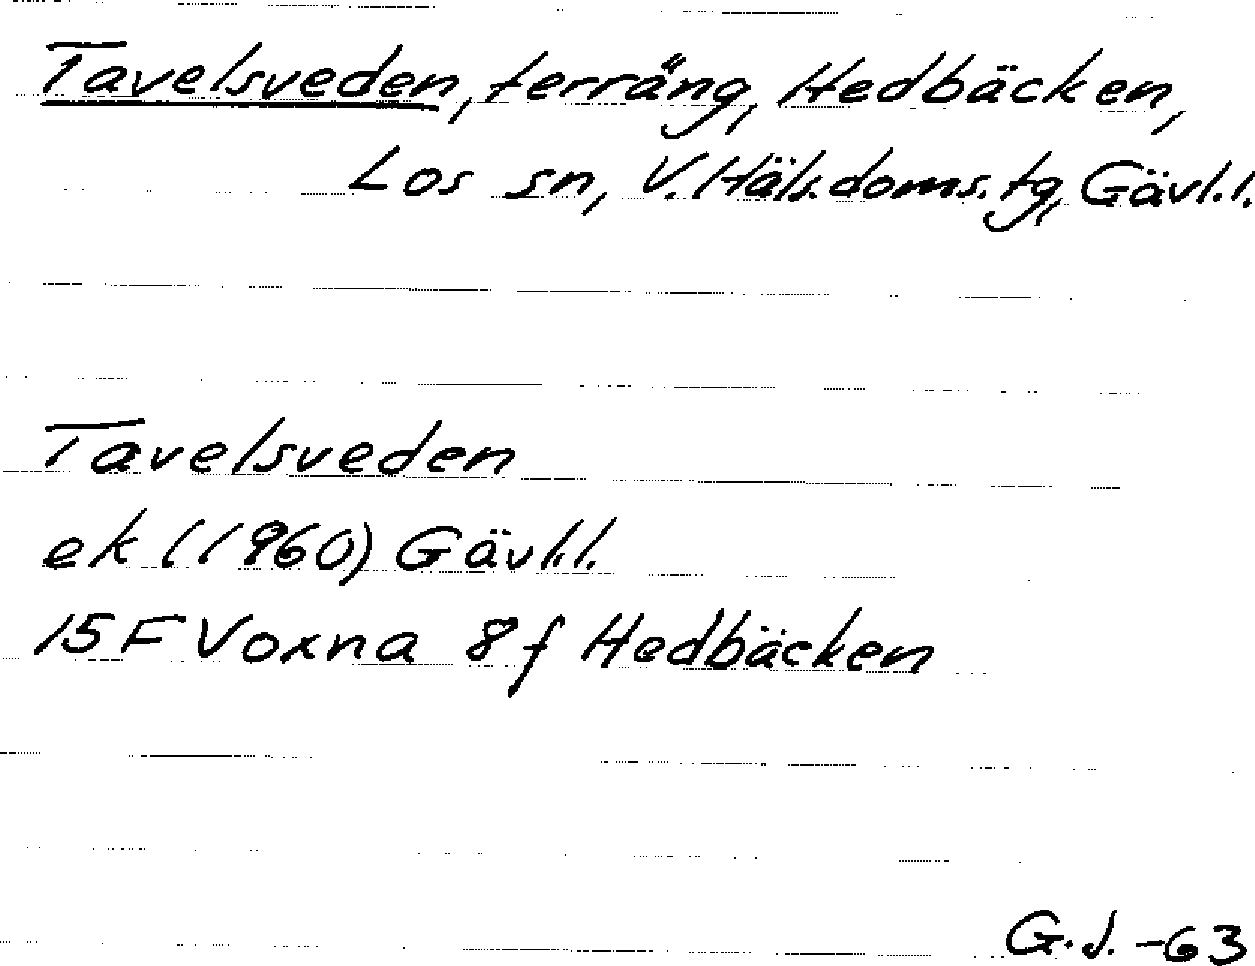 Tavelsveden, terräng, Hedbäcken,
Los sn, V. Häls. doms. tg, Gävl. l.
Tavelsveden
ek (1960) Gävl. l.
15 F Voxna 8 f Hedbäcken
G. J. -63